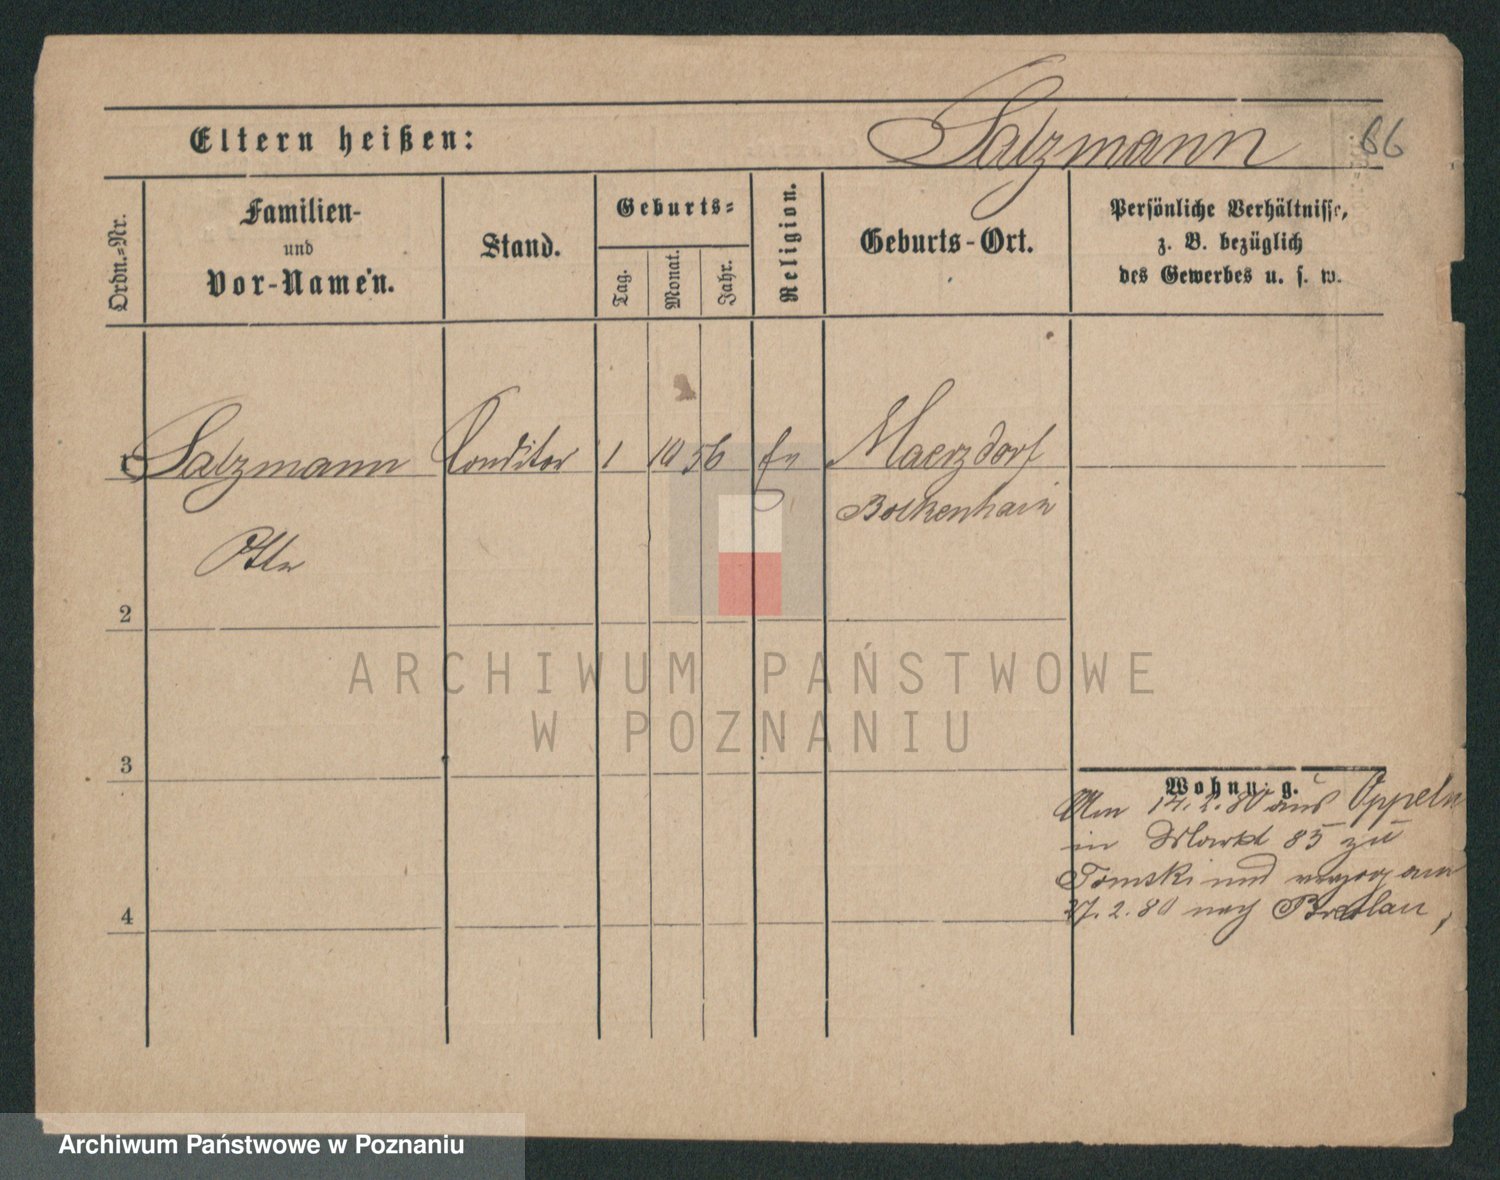 Eltern heißen: Salzmann 66
Ordn.-Nr.
Familien-
und
Vor-Namen.
Stand.
Geburts-
Tag.
Monat.
Jahr.
Religion.
Geburts-Ort.
Persönliche Verhältnisse,
z. B. bezüglich
des Gewerbes u. s. w.
1 Salzmann Conditor 1 10 56 Maerzdorf
Bolkenhain
Otto
2
3
4
Wohnung.
Am 14. 2. 80 aus Oppeln
in Markt 85 zu
Tomski und verzog am
27. 2. 80 nach Breslau,
ARCHIWUM PAŃSTWOWE
W POZNANIU
Archiwum Państwowe w Poznaniu